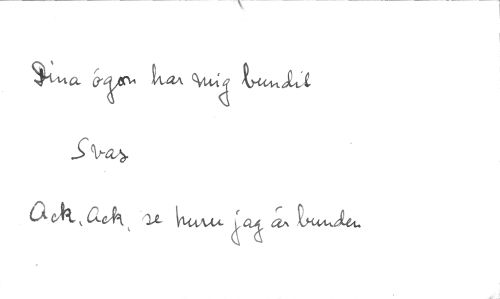 Dina ögon har mig bundit
Svar
Ack, Ack, se huru jag är bunden